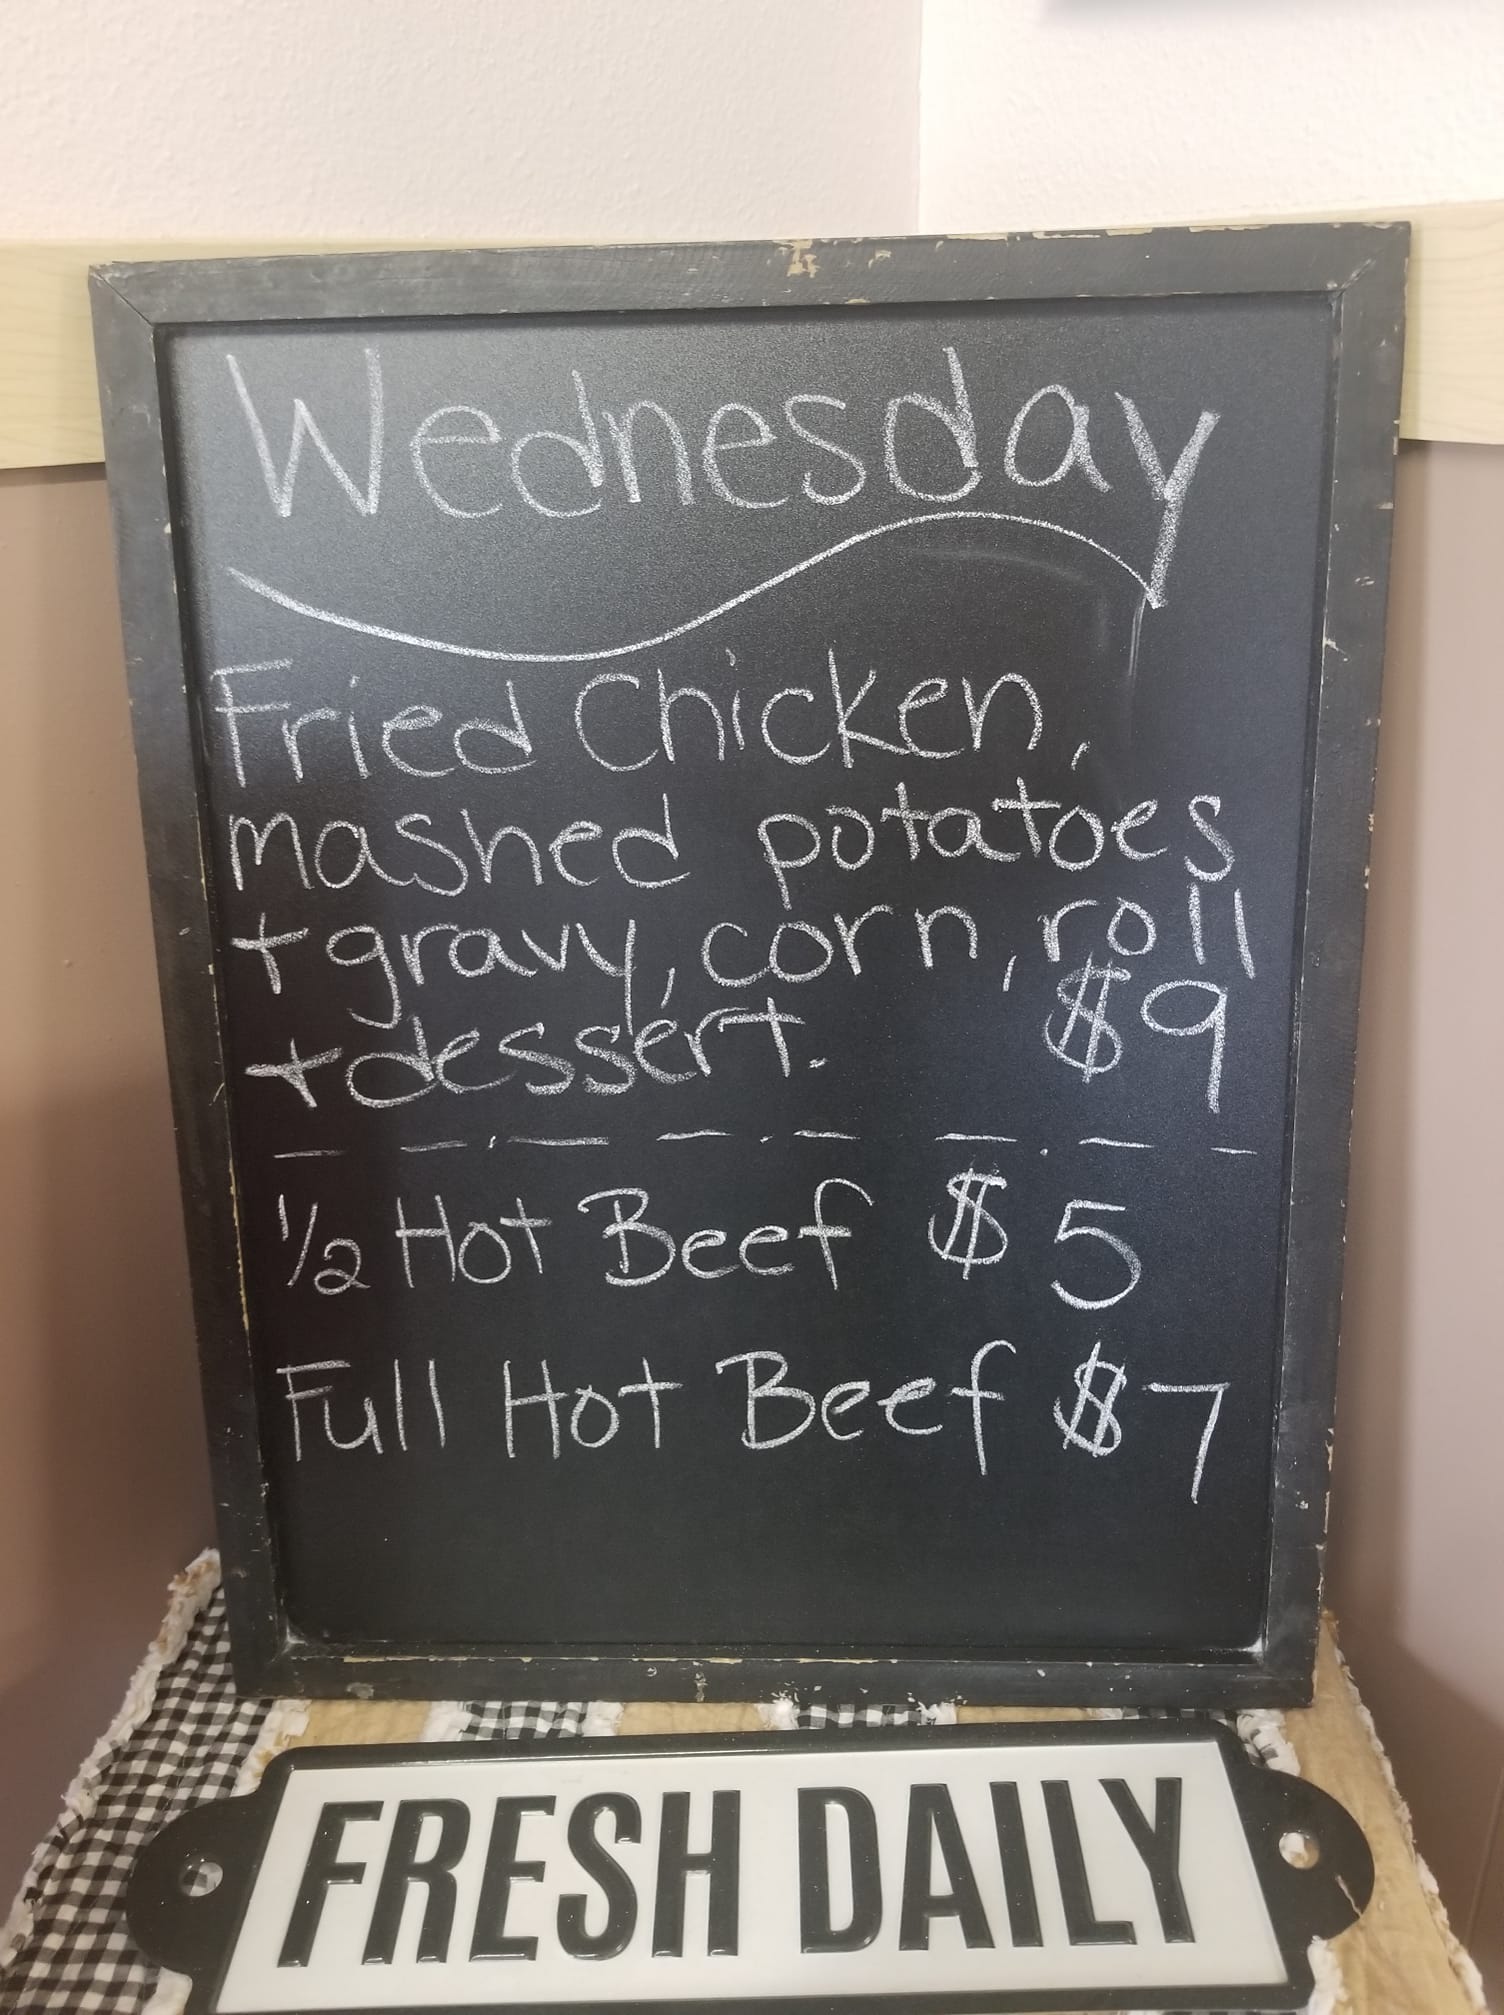 Wednesday
Fried Chicken,
mashed potatoes
+ gravy, corn, roll
+ dessert. $9
1/2 Hot Beef $5
Full Hot Beef $7
FRESH DAILY